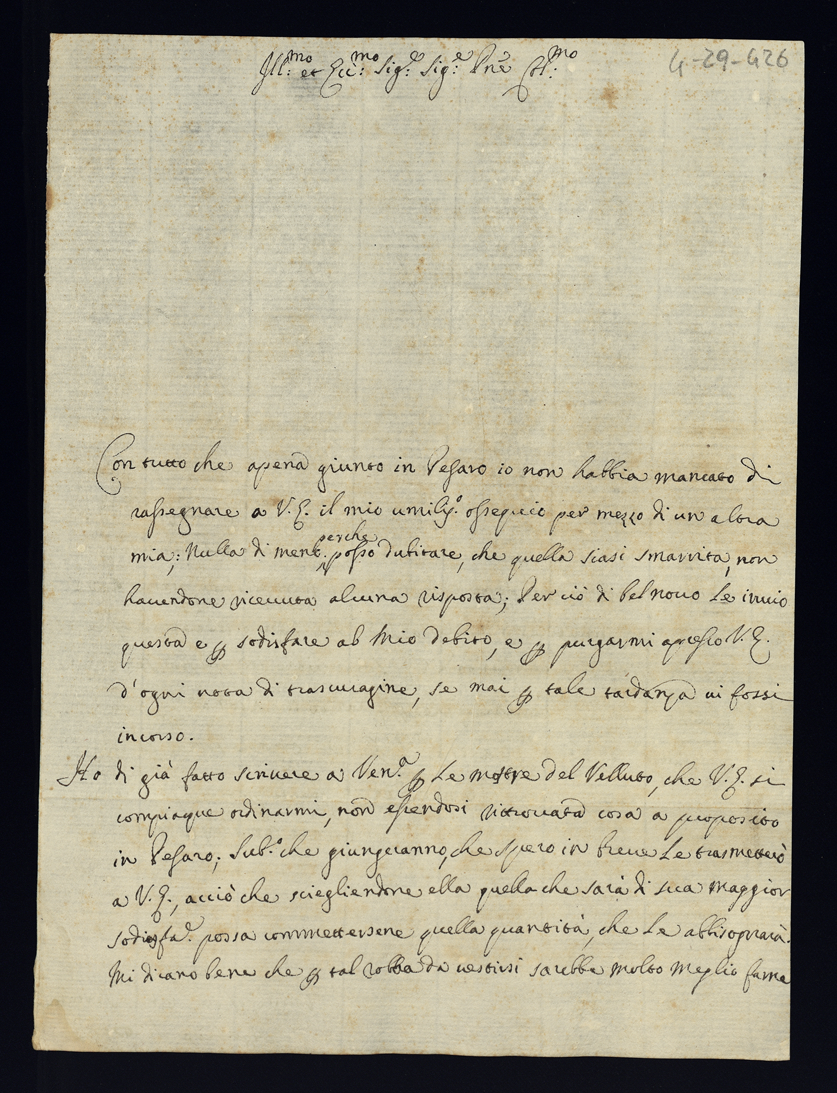 Ill:mo et Ecc:mo Sig:e Sig:e Pne Col:mo
4-29-426
Con tutto che apena giunto in Pesaro io non habbia mancato di
rassegnare a V.E. il mio umiliss.o ossequio per mezzo di un altra
mia; Nulla di meno perche posso dubitare, che quella siasi smarrita, non
havendone ricevuta alcuna risposta; Per ciò di bel novo Le invio
questa e ꝑ sodisfare al Mio debito, e ꝑ purgarmi apresso V.E.
d'ogni nota di trascuragine, se mai ꝑ tale tardanza vi fossi
incorso.
Ho di già fatto scrivere a Ven.a ꝑ Le mostre del Velluto, che V.E. si
compiaque ordinarmi, non essendosi ritrovata cosa a proposito
in Pesaro; Sub.o che giungeranno, che spero in breve Le trasmetterò
a V.E., acciò che sciegliendone ella quella che sarà di sua Maggior
sodisfa.e possa commettersene quella quantità, che Le abbisognarà.
Mi dicano bene che ꝑ tal robba da vestirsi sarebbe molto meglio farne